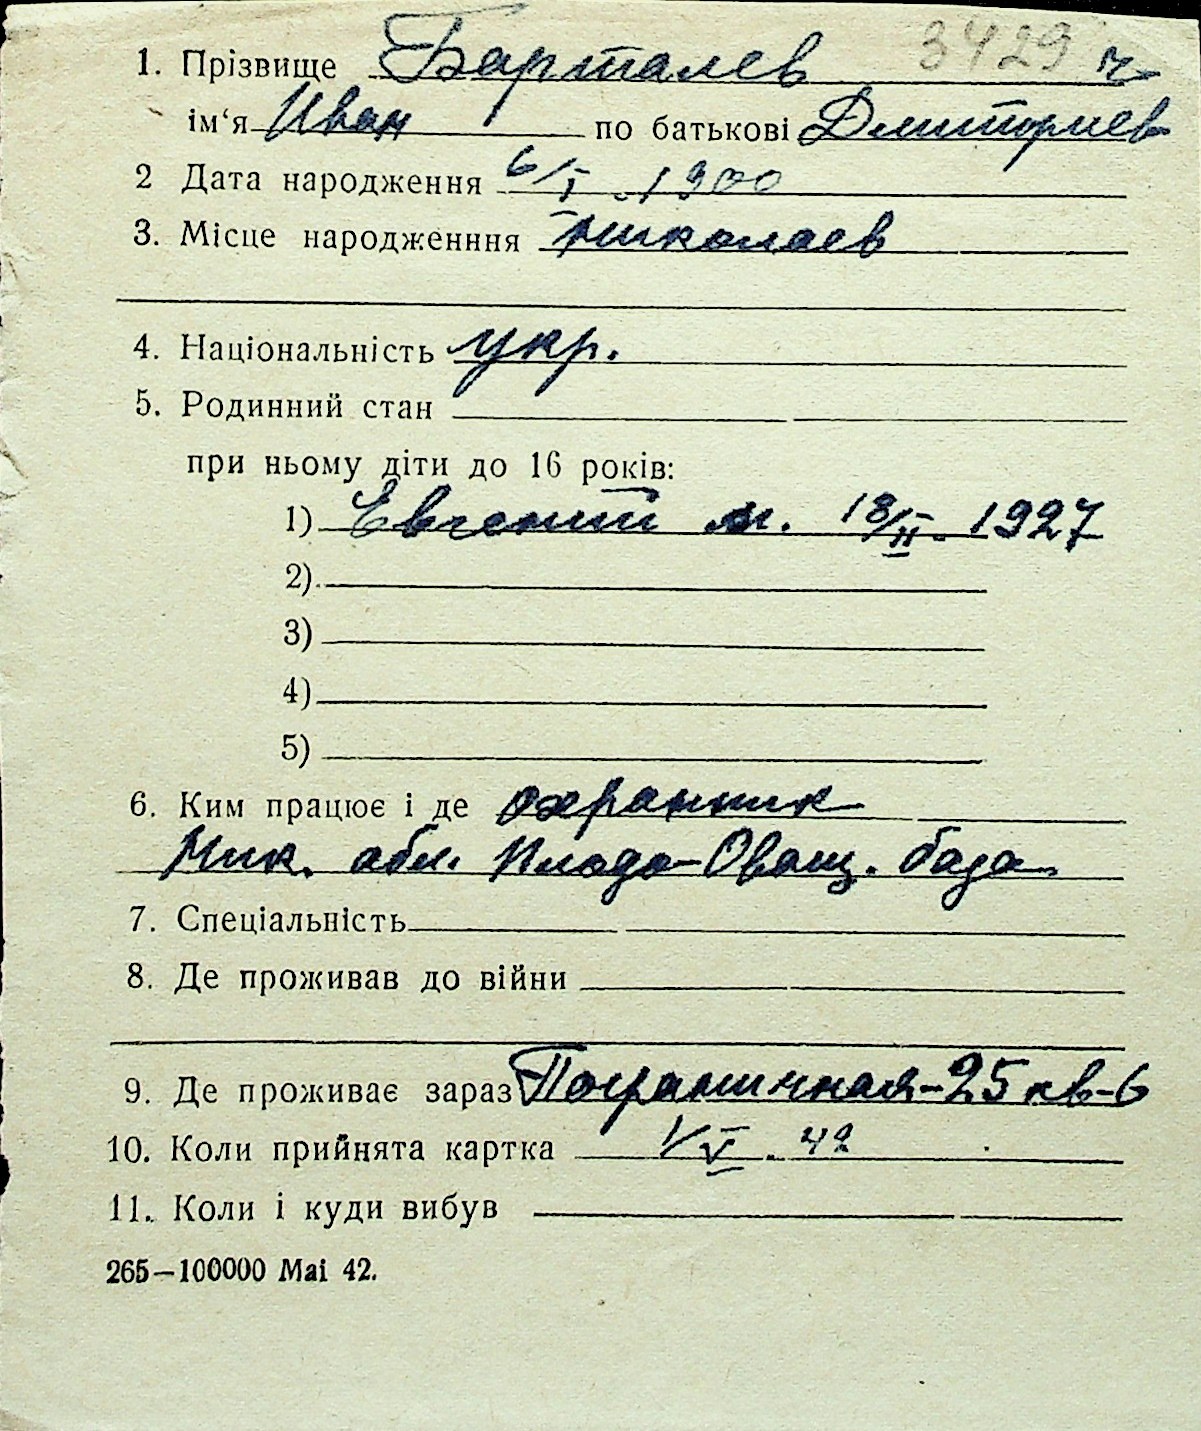 3429 ч
1. Прізвище Барталев
ім‘я Иван по батькові Дмитриев
2 Дата народження 6/I . 1900
3. Місце народженння Николаев
4. Національність укр.
5. Родинний стан
при ньому діти до 16 років:
1) Евгений м. 18/II. 1927
2)
3)
4)
5)
6. Ким працює і де охранник
Ник. обл. Плодо-Овощ. база
7. Спеціальність
8. Де проживав до війни
9. Де проживає зараз Пограничная-25 кв-6
10. Коли прийнята картка 1/V. 42
11. Коли і куди вибув
265—100000 Mai 42.